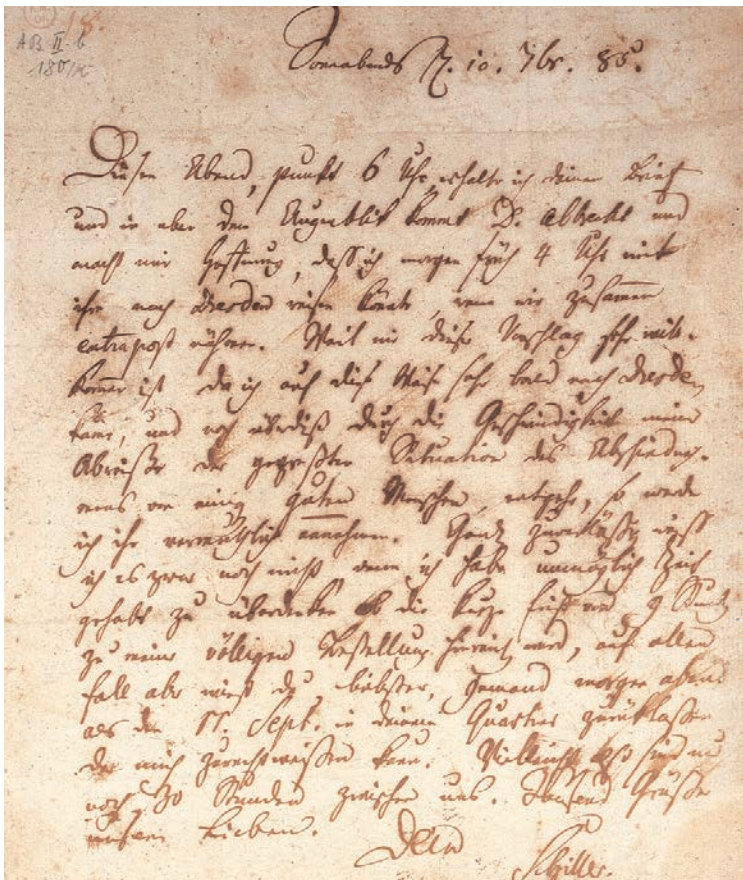 18.
AB II. b
180/2
Sonnabends d. 10. 7br. 85.
Diesen Abend, punkt 6 Uhr, erhalte ich deinen Brief
und in eben dem Augenblik kommt D. Albrecht und
macht mir Hoffnung, daß ich morgen früh 4 Uhr mit
ihm nach Dresden reisen könnte, wenn wir zusammen
extrapost nähmen. Weil mir dieser Vorschlag sehr will-
kommen ist da ich auf diese Weise sehr bald nach Dresden
käme, und noch überdiß durch die Geschwindigkeit meiner
Abreise der gepreßten Situation des Abschiedneh-
mens von einigen guten Menschen entgehe, so werde
ich ihn vermuthlich annehmen. Ganz zuverläßig weiß
ich es zwar noch nicht denn ich habe unmöglich Zeit
gehabt zu überdenken ob die kurze Frist von 9 Stunden
zu meiner völligen Bestellung hinreichen wird, auf allen
Fall aber wirst du, liebster, jemand morgen abend
als den 11. Sept. in deinem Quartier zurüklassen
der mich zurechtweisen kann. Vielleicht also sind nur
noch 30 Stunden zwischen uns. Tausend Grüße
unsern Lieben. Dein
Schiller.